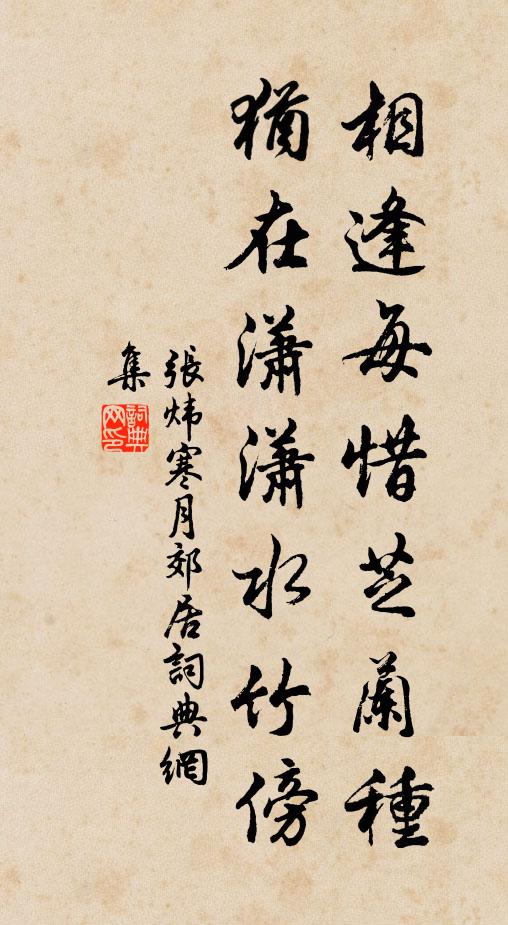 相逢每惜芝蘭種
猶在瀟瀟水竹傍
張煒寒月郊居詞典網
集
詞典网印